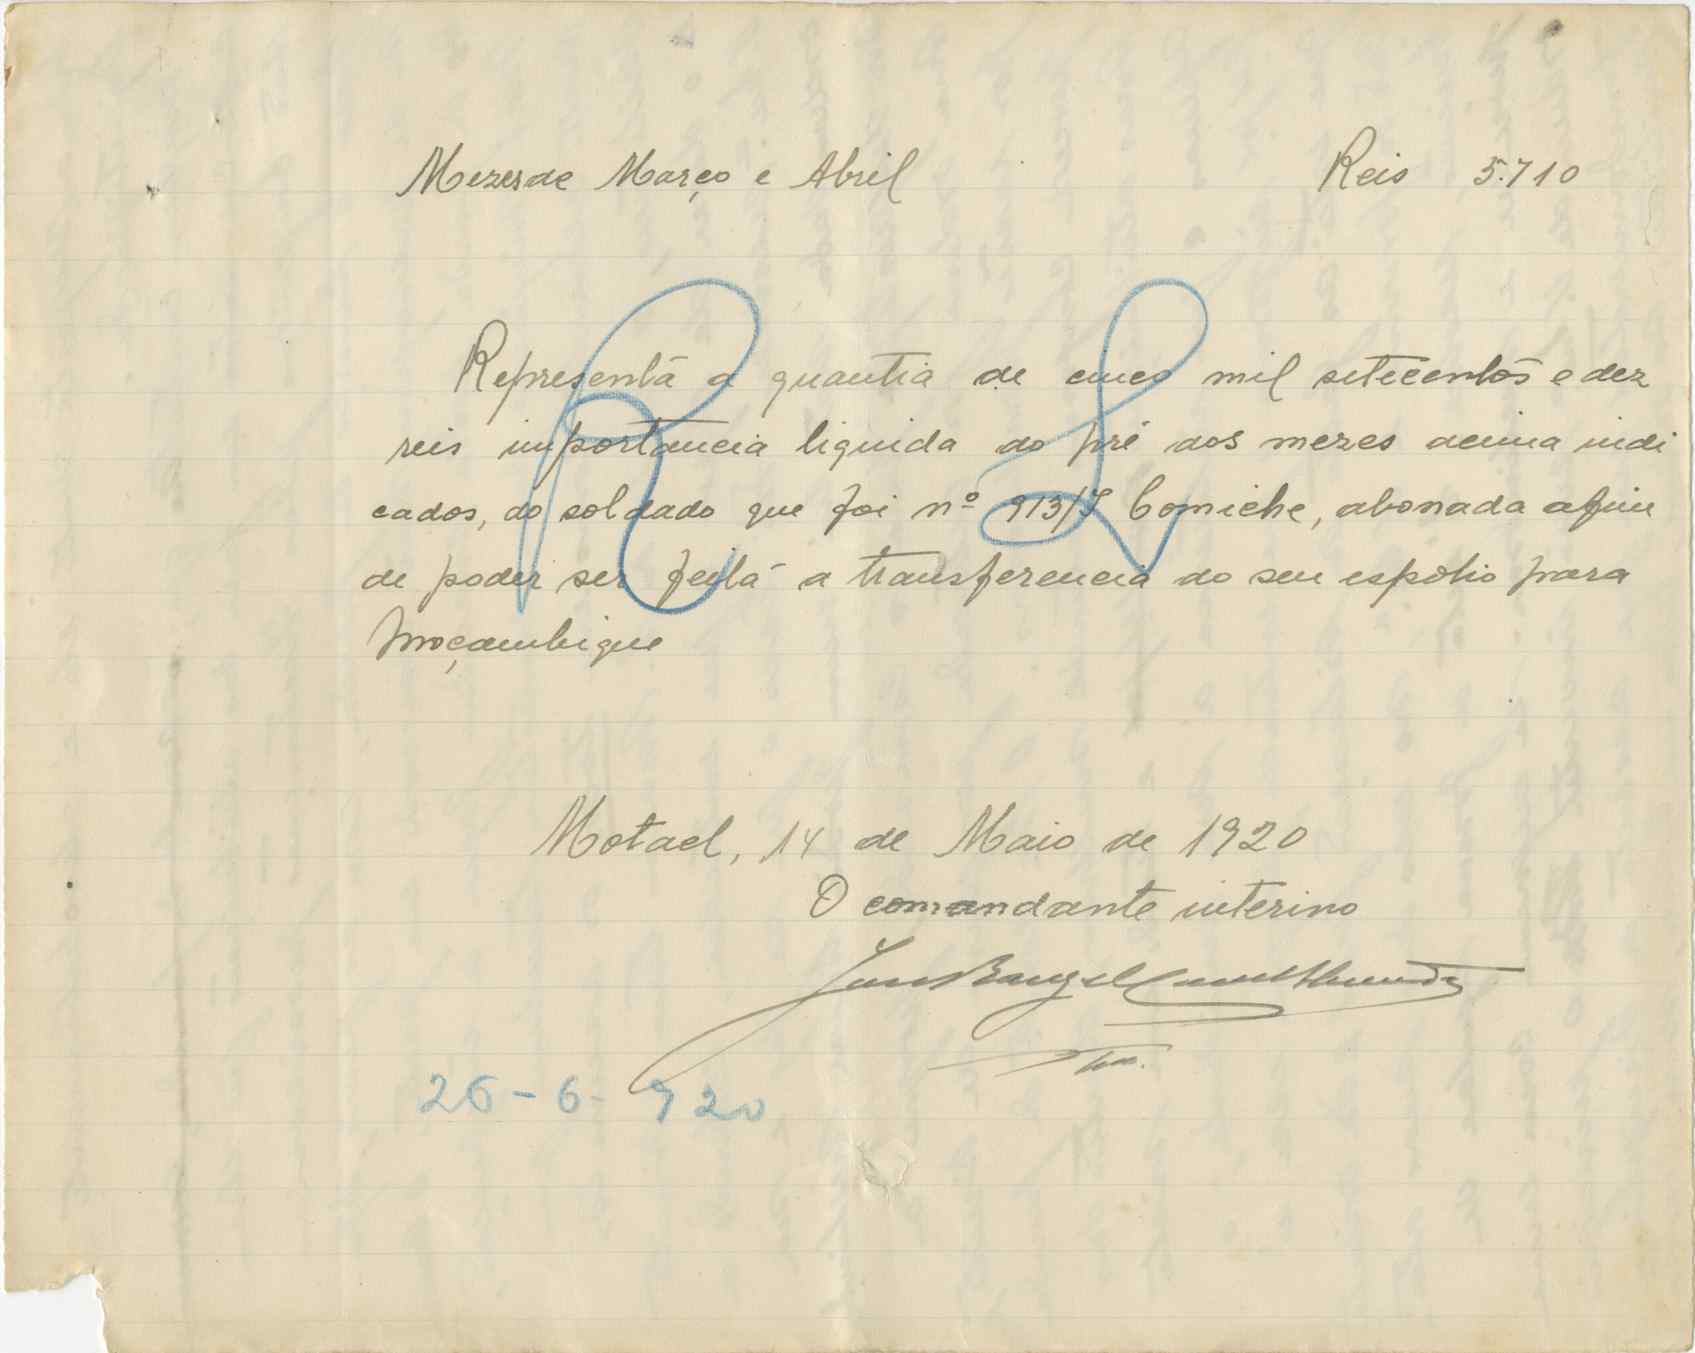 Mezes de Março e Abril Reis 5.710
Representa a quantia de cinco mil setecentos e dez
reis importancia liquida do pré dos mezes acima indi
cados, do soldado que foi nº 913/I Comiche, abonada afim
de poder ser feita a transferencia do seu espolio para
Moçambique
Motael, 14 de Maio de 1920
O comandante interino
26-6-920